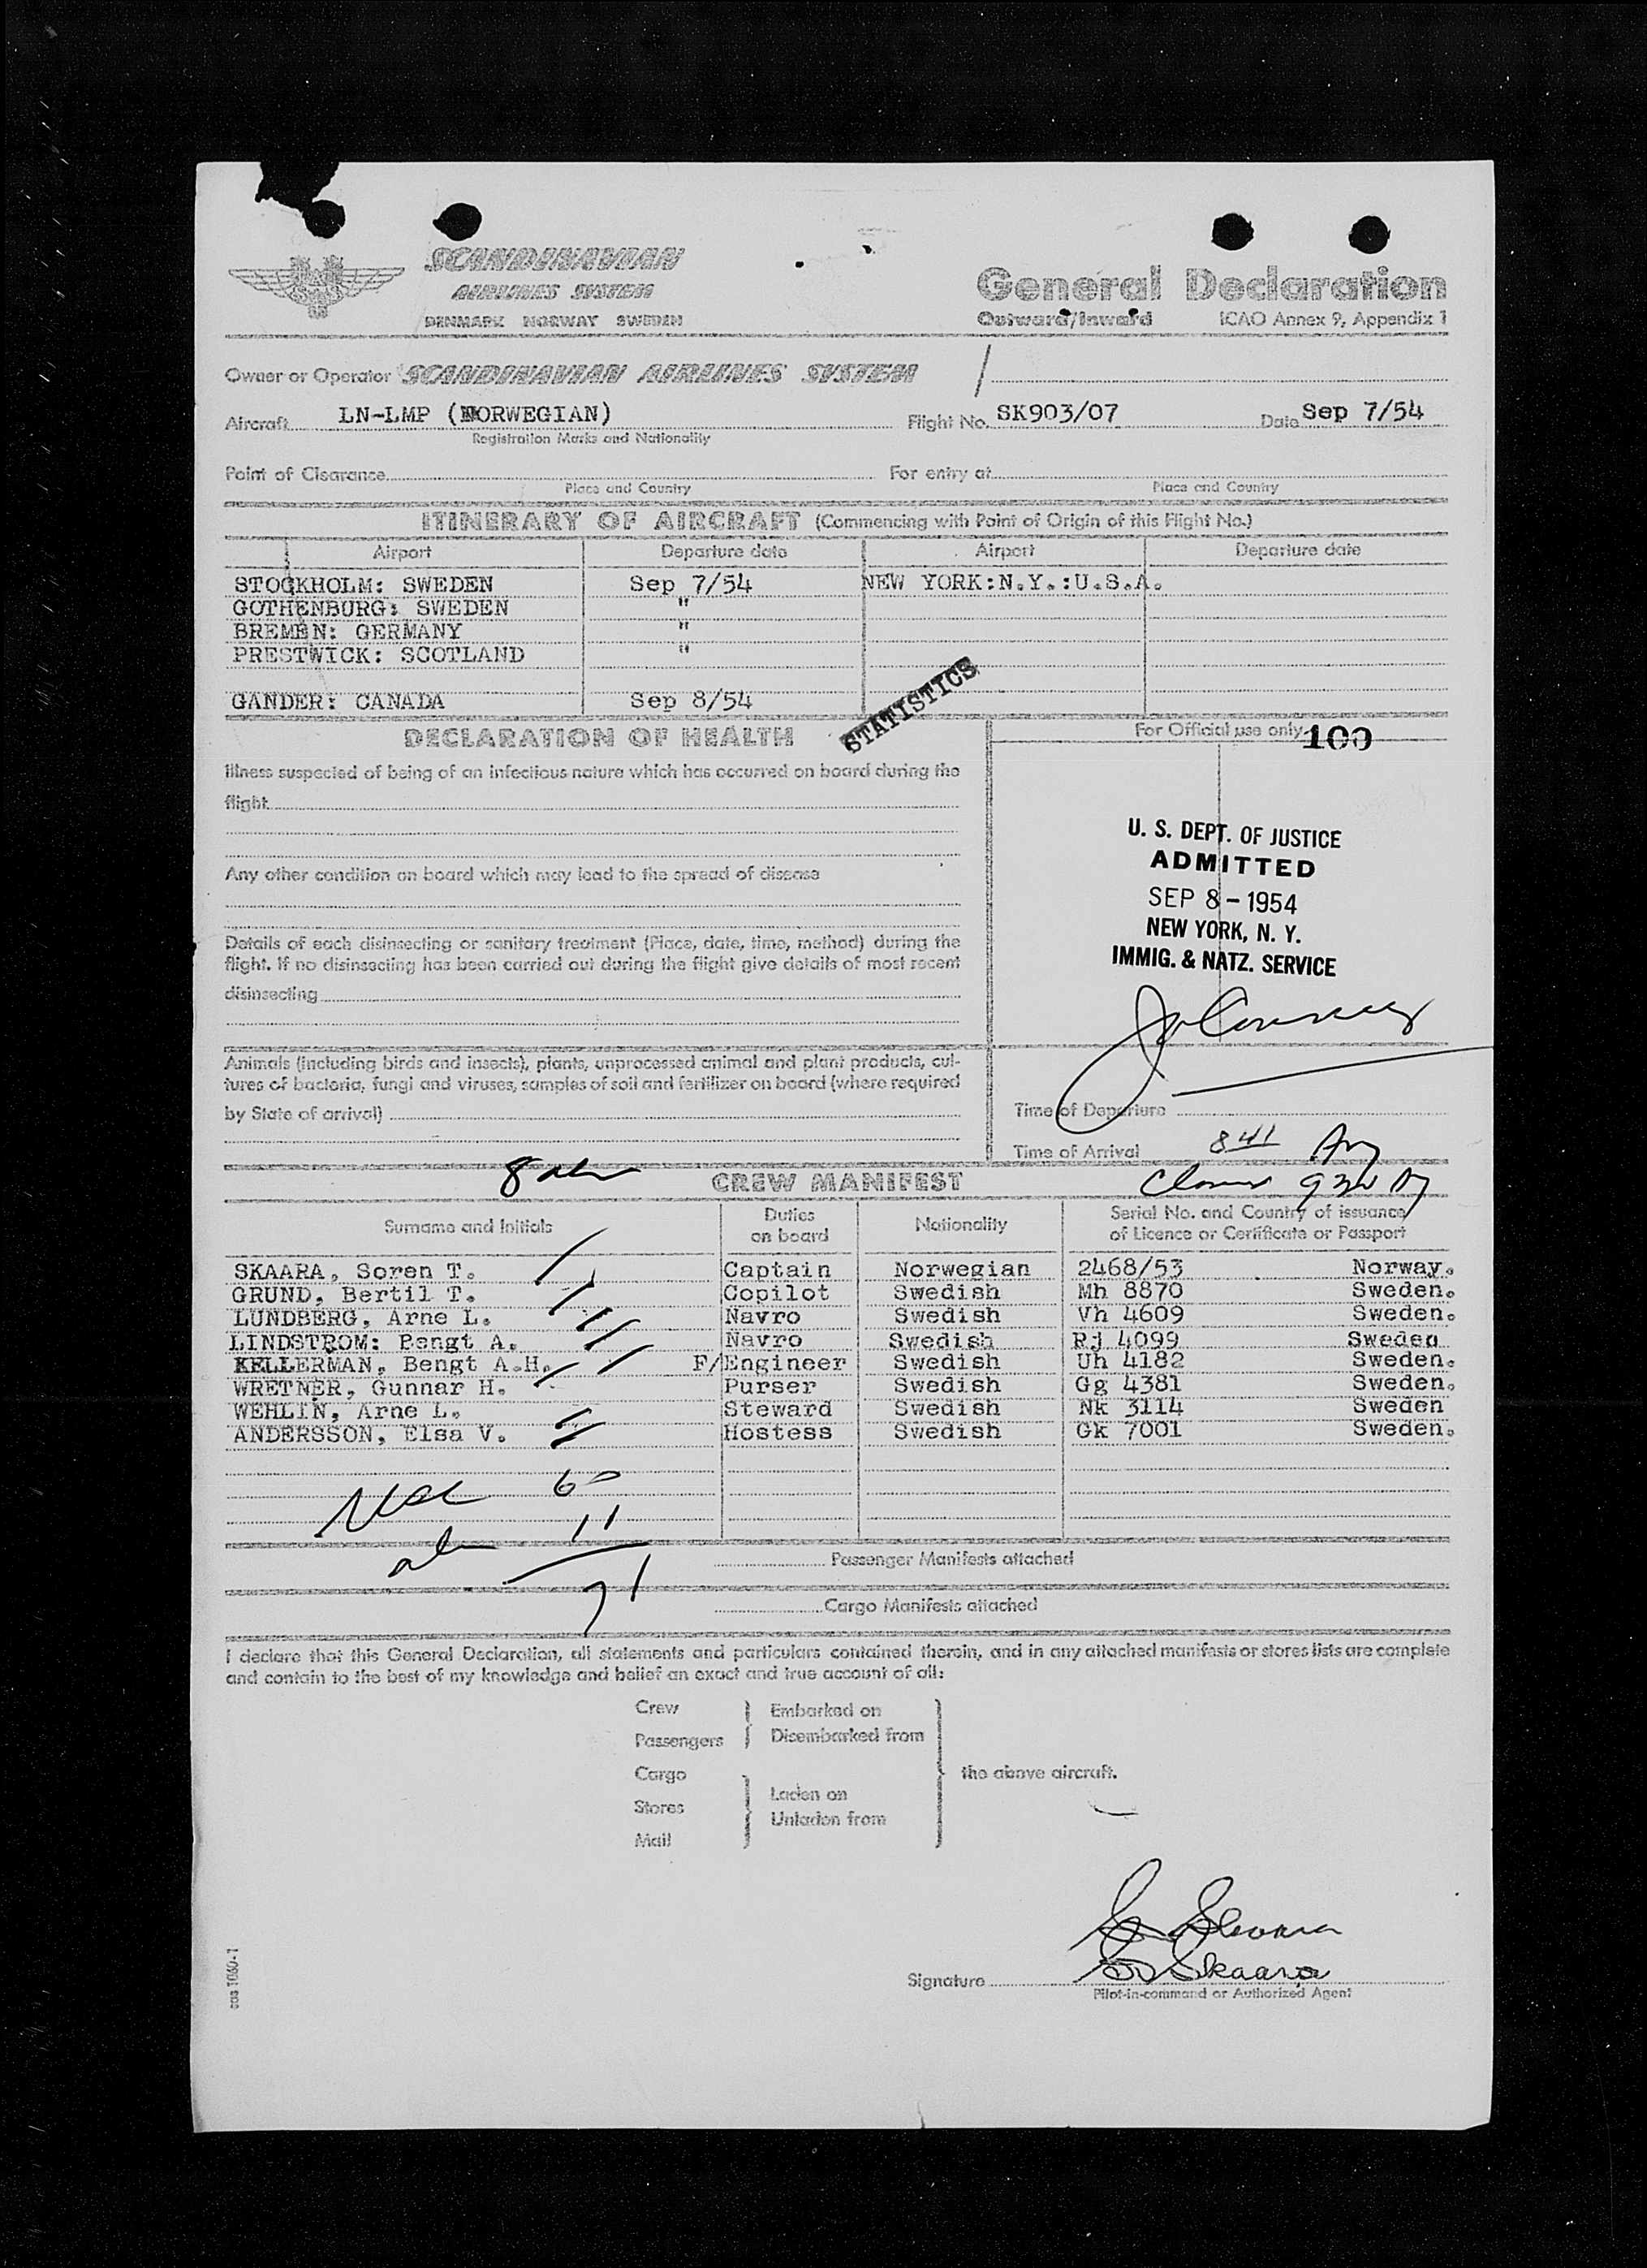 SCANDINAVIAN
AIRLINES SYSTEM
DENMARK NORWAY SWEDEN
General Declaration
Outward/Inward ICAO Annex 9, Appendix 1
Owner or Operator SCANDINAVIAN AIRLINES SYSTEM
Aircraft LN-LMP (NORWEGIAN) Flight No. SK903/07 Date Sep 7/54
Registration Marks and Nationality
Point of Clearance For entry at
Place and Country Place and Country
ITINERARY OF AIRCRAFT (Commencing with Point of Origin of this Flight No.)
Airport Departure date Airport Departure date
STOCKHOLM: SWEDEN Sep 7/54 NEW YORK:N.Y.:U.S.A.
GOTHENBURG: SWEDEN "
BREMEN: GERMANY "
PRESTWICK: SCOTLAND "
GANDER: CANADA Sep 8/54
STATISTICS
DECLARATION OF HEALTH
For Official use only 100
Illness suspected of being of an infectious nature which has occurred on board during the
flight
Any other condition on board which may lead to the spread of disease
Details of each disinsecting or sanitary treatment (Place, date, time, method) during the
flight. If no disinsecting has been carried out during the flight give details of most recent
disinsecting
U. S. DEPT. OF JUSTICE
ADMITTED
SEP 8 - 1954
NEW YORK, N. Y.
IMMIG. & NATZ. SERVICE
Animals (including birds and insects), plants, unprocessed animal and plant products, cul-
tures of bacteria, fungi and viruses, samples of soil and fertilizer on board (where required
by State of arrival)
Time of Departure
Time of Arrival 841 Am
8 CREW MANIFEST
Surname and Initials Duties on board Nationality Serial No. and Country of issuance of Licence or Certificate or Passport
SKAARA, Soren T. Captain Norwegian 2468/53 Norway.
GRUND, Bertil T. Copilot Swedish Mh 8870 Sweden.
LUNDBERG, Arne L. Navro Swedish Vh 4609 Sweden.
LINDSTROM: Bengt A. Navro Swedish Rj 4099 Sweden
KELLERMAN, Bengt A.H. F/Engineer Swedish Uh 4182 Sweden.
WRETNER, Gunnar H. Purser Swedish Gg 4381 Sweden.
WEHLIN, Arne L. Steward Swedish Nk 3114 Sweden
ANDERSSON, Elsa V. Hostess Swedish Gk 7001 Sweden.
60
11
71
Passenger Manifests attached
Cargo Manifests attached
I declare that this General Declaration, all statements and particulars contained therein, and in any attached manifests or stores lists are complete
and contain to the best of my knowledge and belief an exact and true account of all:
Crew
Passengers
Embarked on
Disembarked from
Cargo
Stores
Mail
Laden on
Unladen from
the above aircraft.
Signature S Skaara
Pilot-in-command or Authorized Agent